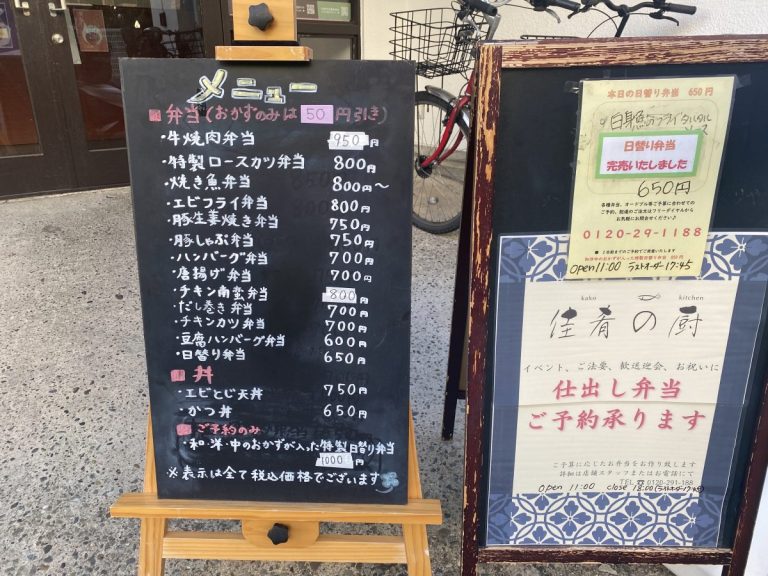 メニュー
弁当(おかずのみは50円引き)
・牛焼肉弁当 950円
・特製ロースカツ弁当 800円
・焼き魚弁当 800円〜
・エビフライ弁当 800円
・豚生姜焼き弁当 750円
・豚しゃぶ弁当 750円
・ハンバーグ弁当 700円
・唐揚げ弁当 700円
・チキン南蛮弁当 800円
・だし巻き弁当 700円
・チキンカツ弁当 700円
・豆腐ハンバーグ弁当 600円
・日替り弁当 650円
丼
・エビとじ天丼 750円
・かつ丼 650円
ご予約のみ
・和・洋・中のおかずが入った特製日替り弁当
1000円
※表示は全て税込価格でございます
本日の日替り弁当 650円
白身魚のフライタルタル
ソース
日替り弁当
完売いたしました
650円
各種弁当、オードブル等ご予算に合わせての
ご予約、配達のご注文はフリーダイヤルから
お気軽にお問合せください♪
0120-29-1188
open 11:00 ラストオーダー 17:45
kako kitchen
佳肴の厨
イベント、ご法要、歓送迎会、お祝いに
仕出し弁当
ご予約承ります
ご予算に応じたお弁当をお作り致します
詳細は店舗スタッフまたはお電話にて
TEL ☎ 0120-291-188
open 11:00 close 18:00 (ラストオーダー17:45)